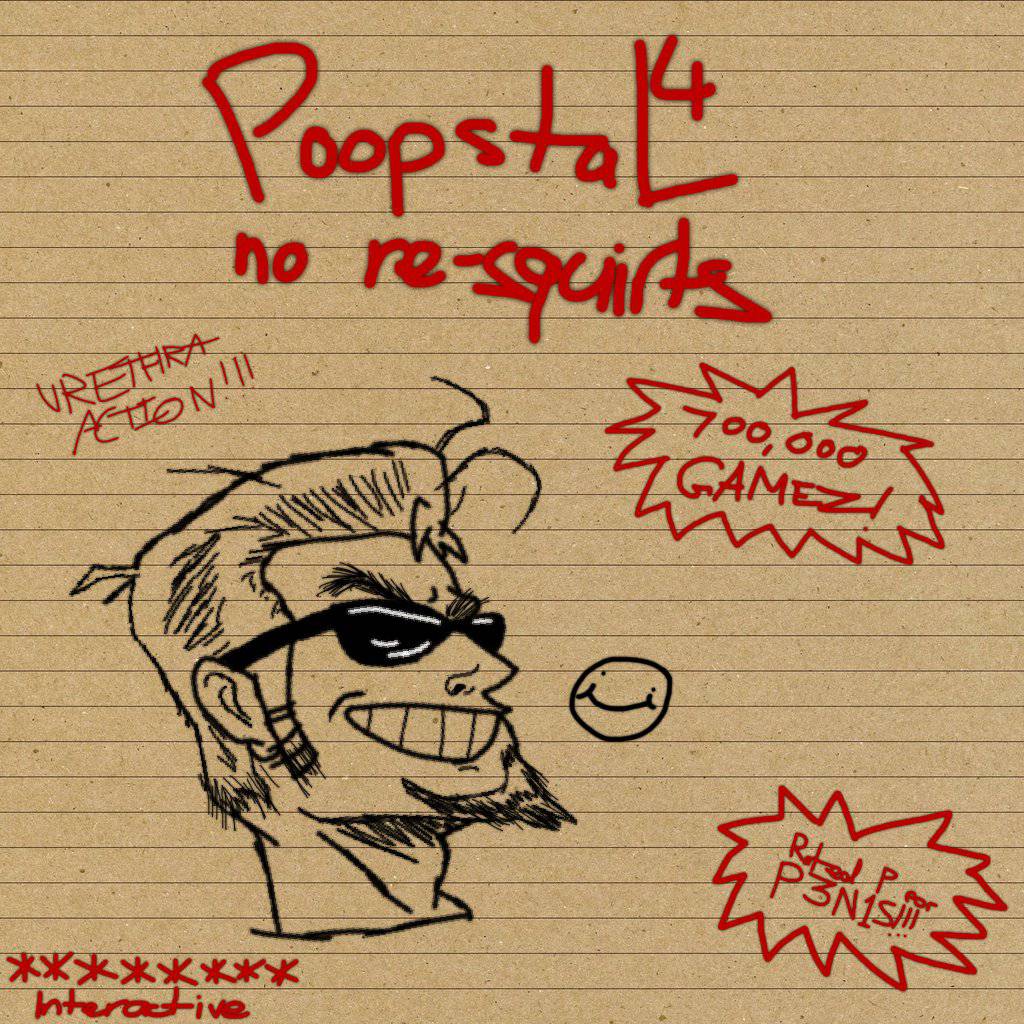 PoopstaL 4
no re-squirts
URETHRA
ACTION!!!
700,000
GAMEZ!
Rated P for
P3N1S!!!
********
Interactive